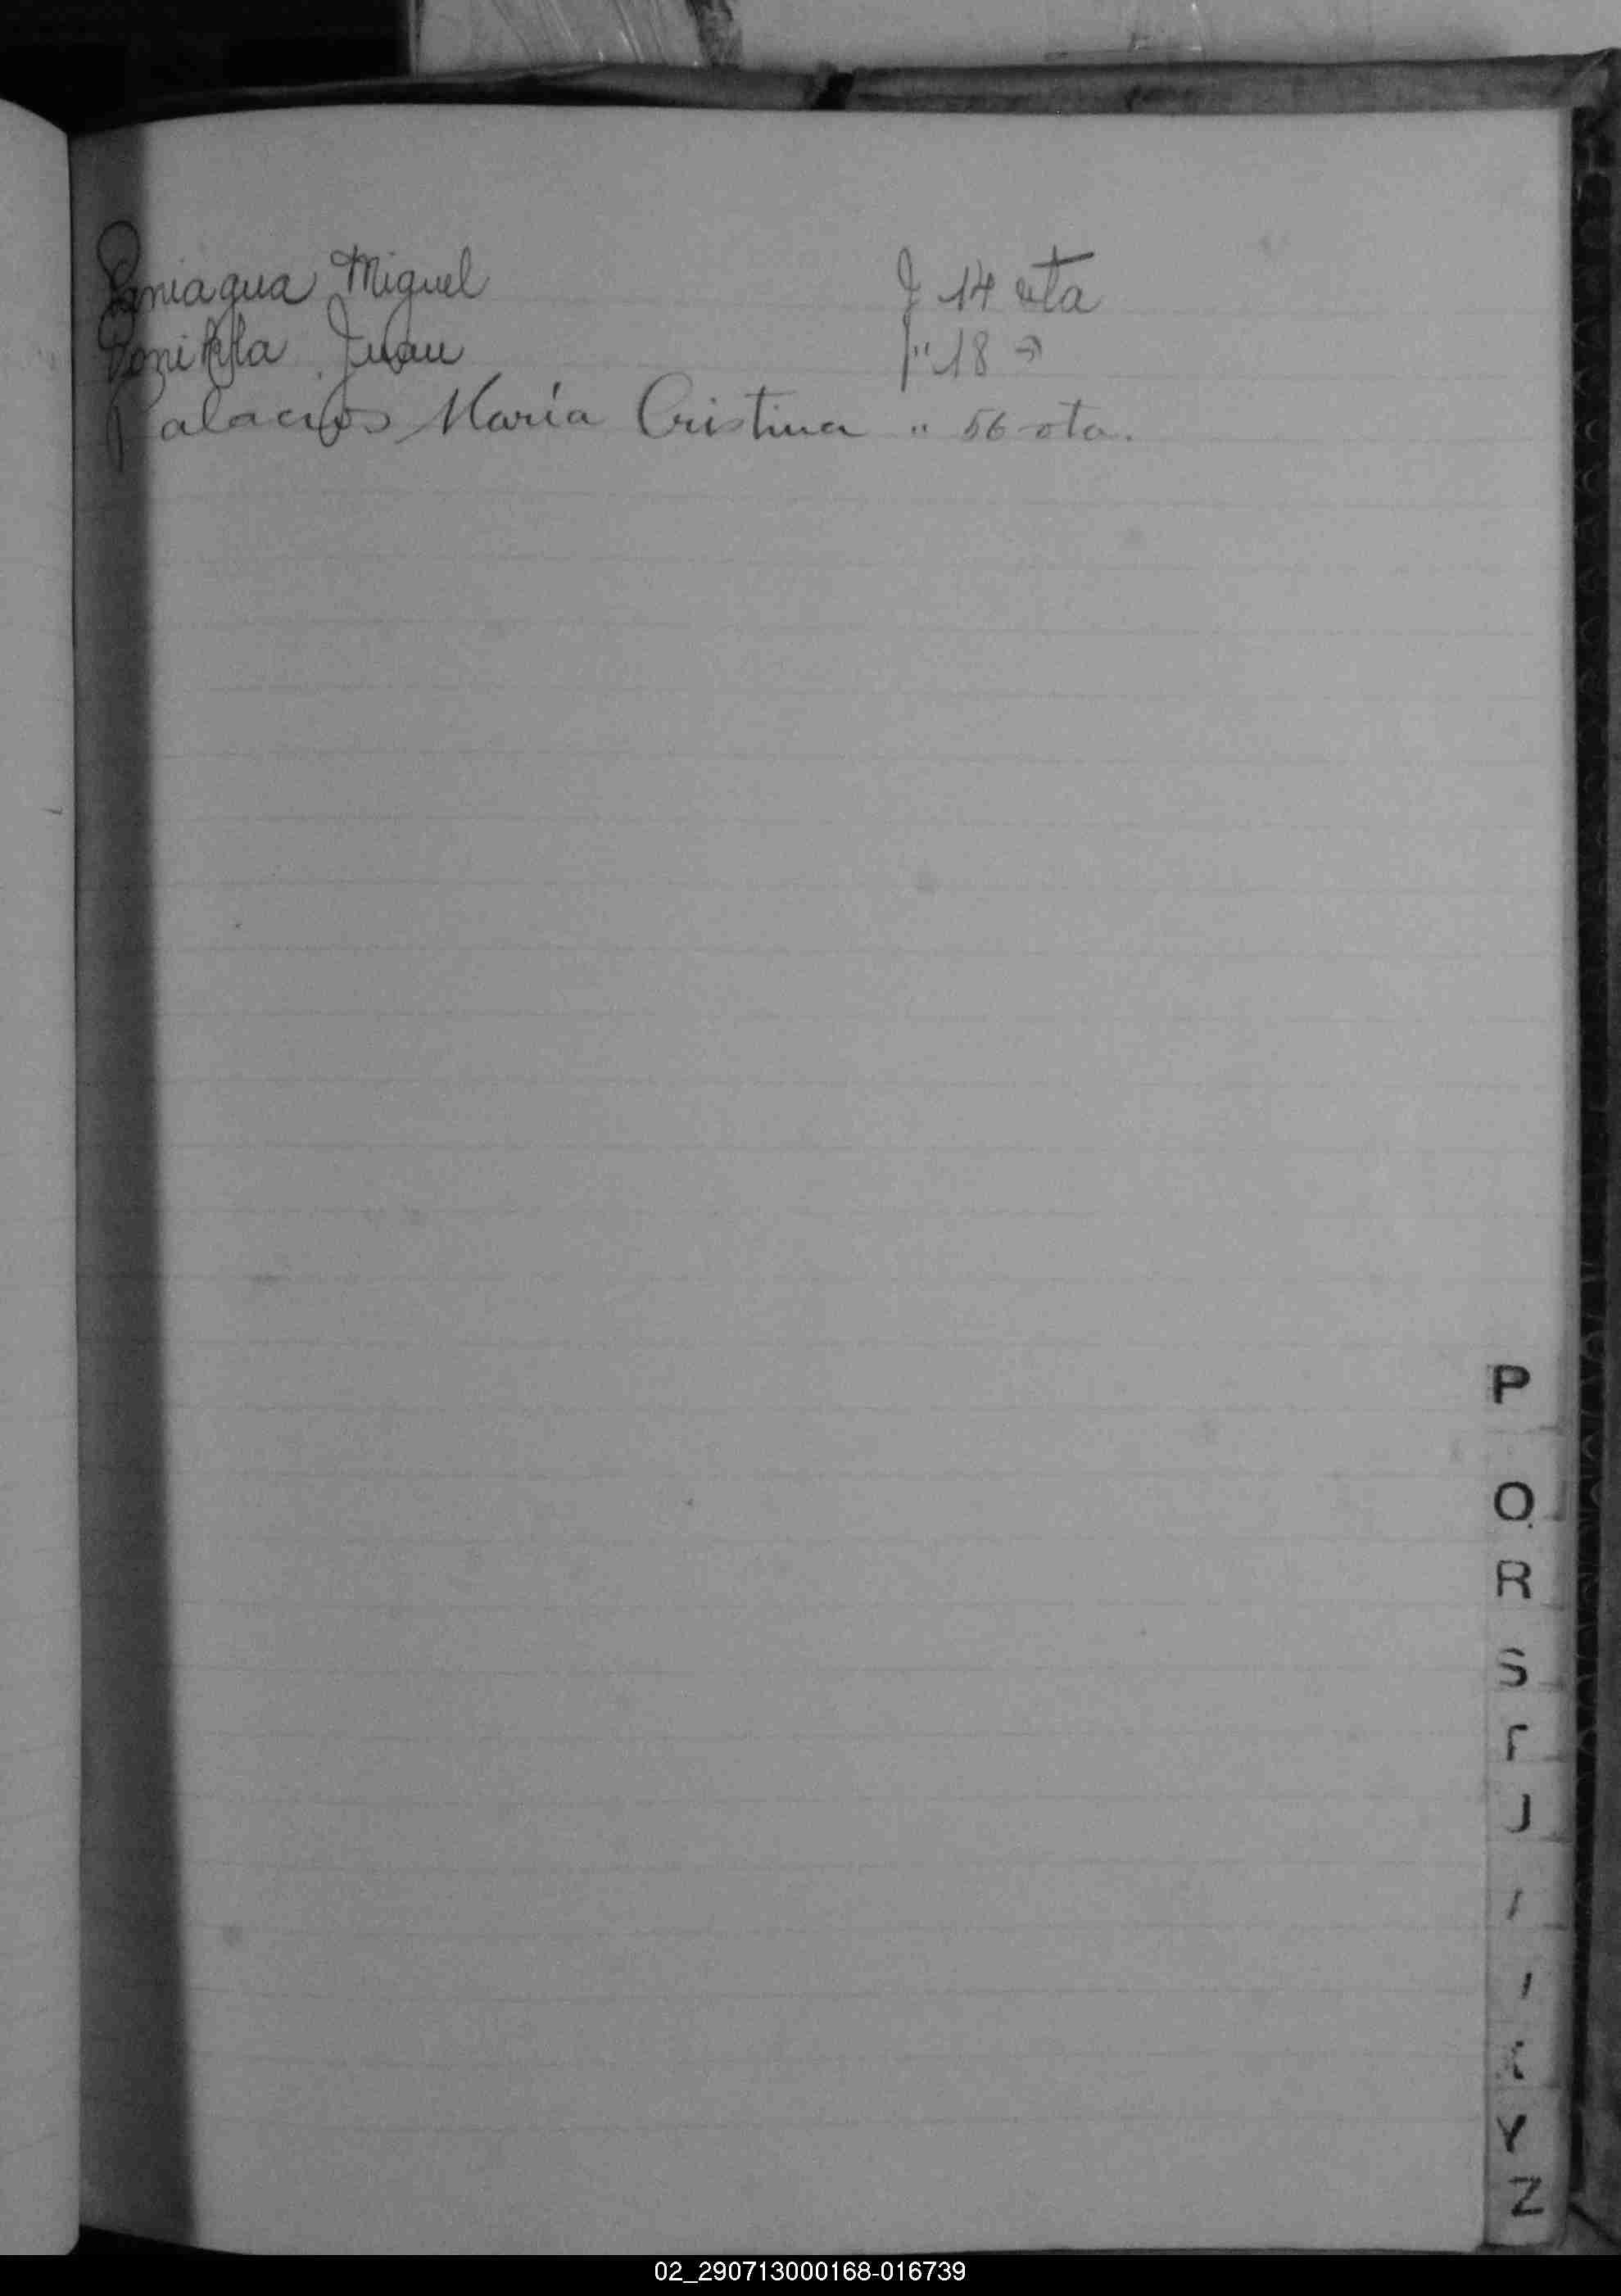 Paniagua Miguel f 14 vta
Juan " 18 "
Palacios María Cristina " 56 vta.
P
Q
R
S
Y
Z
02_290713000168-016739